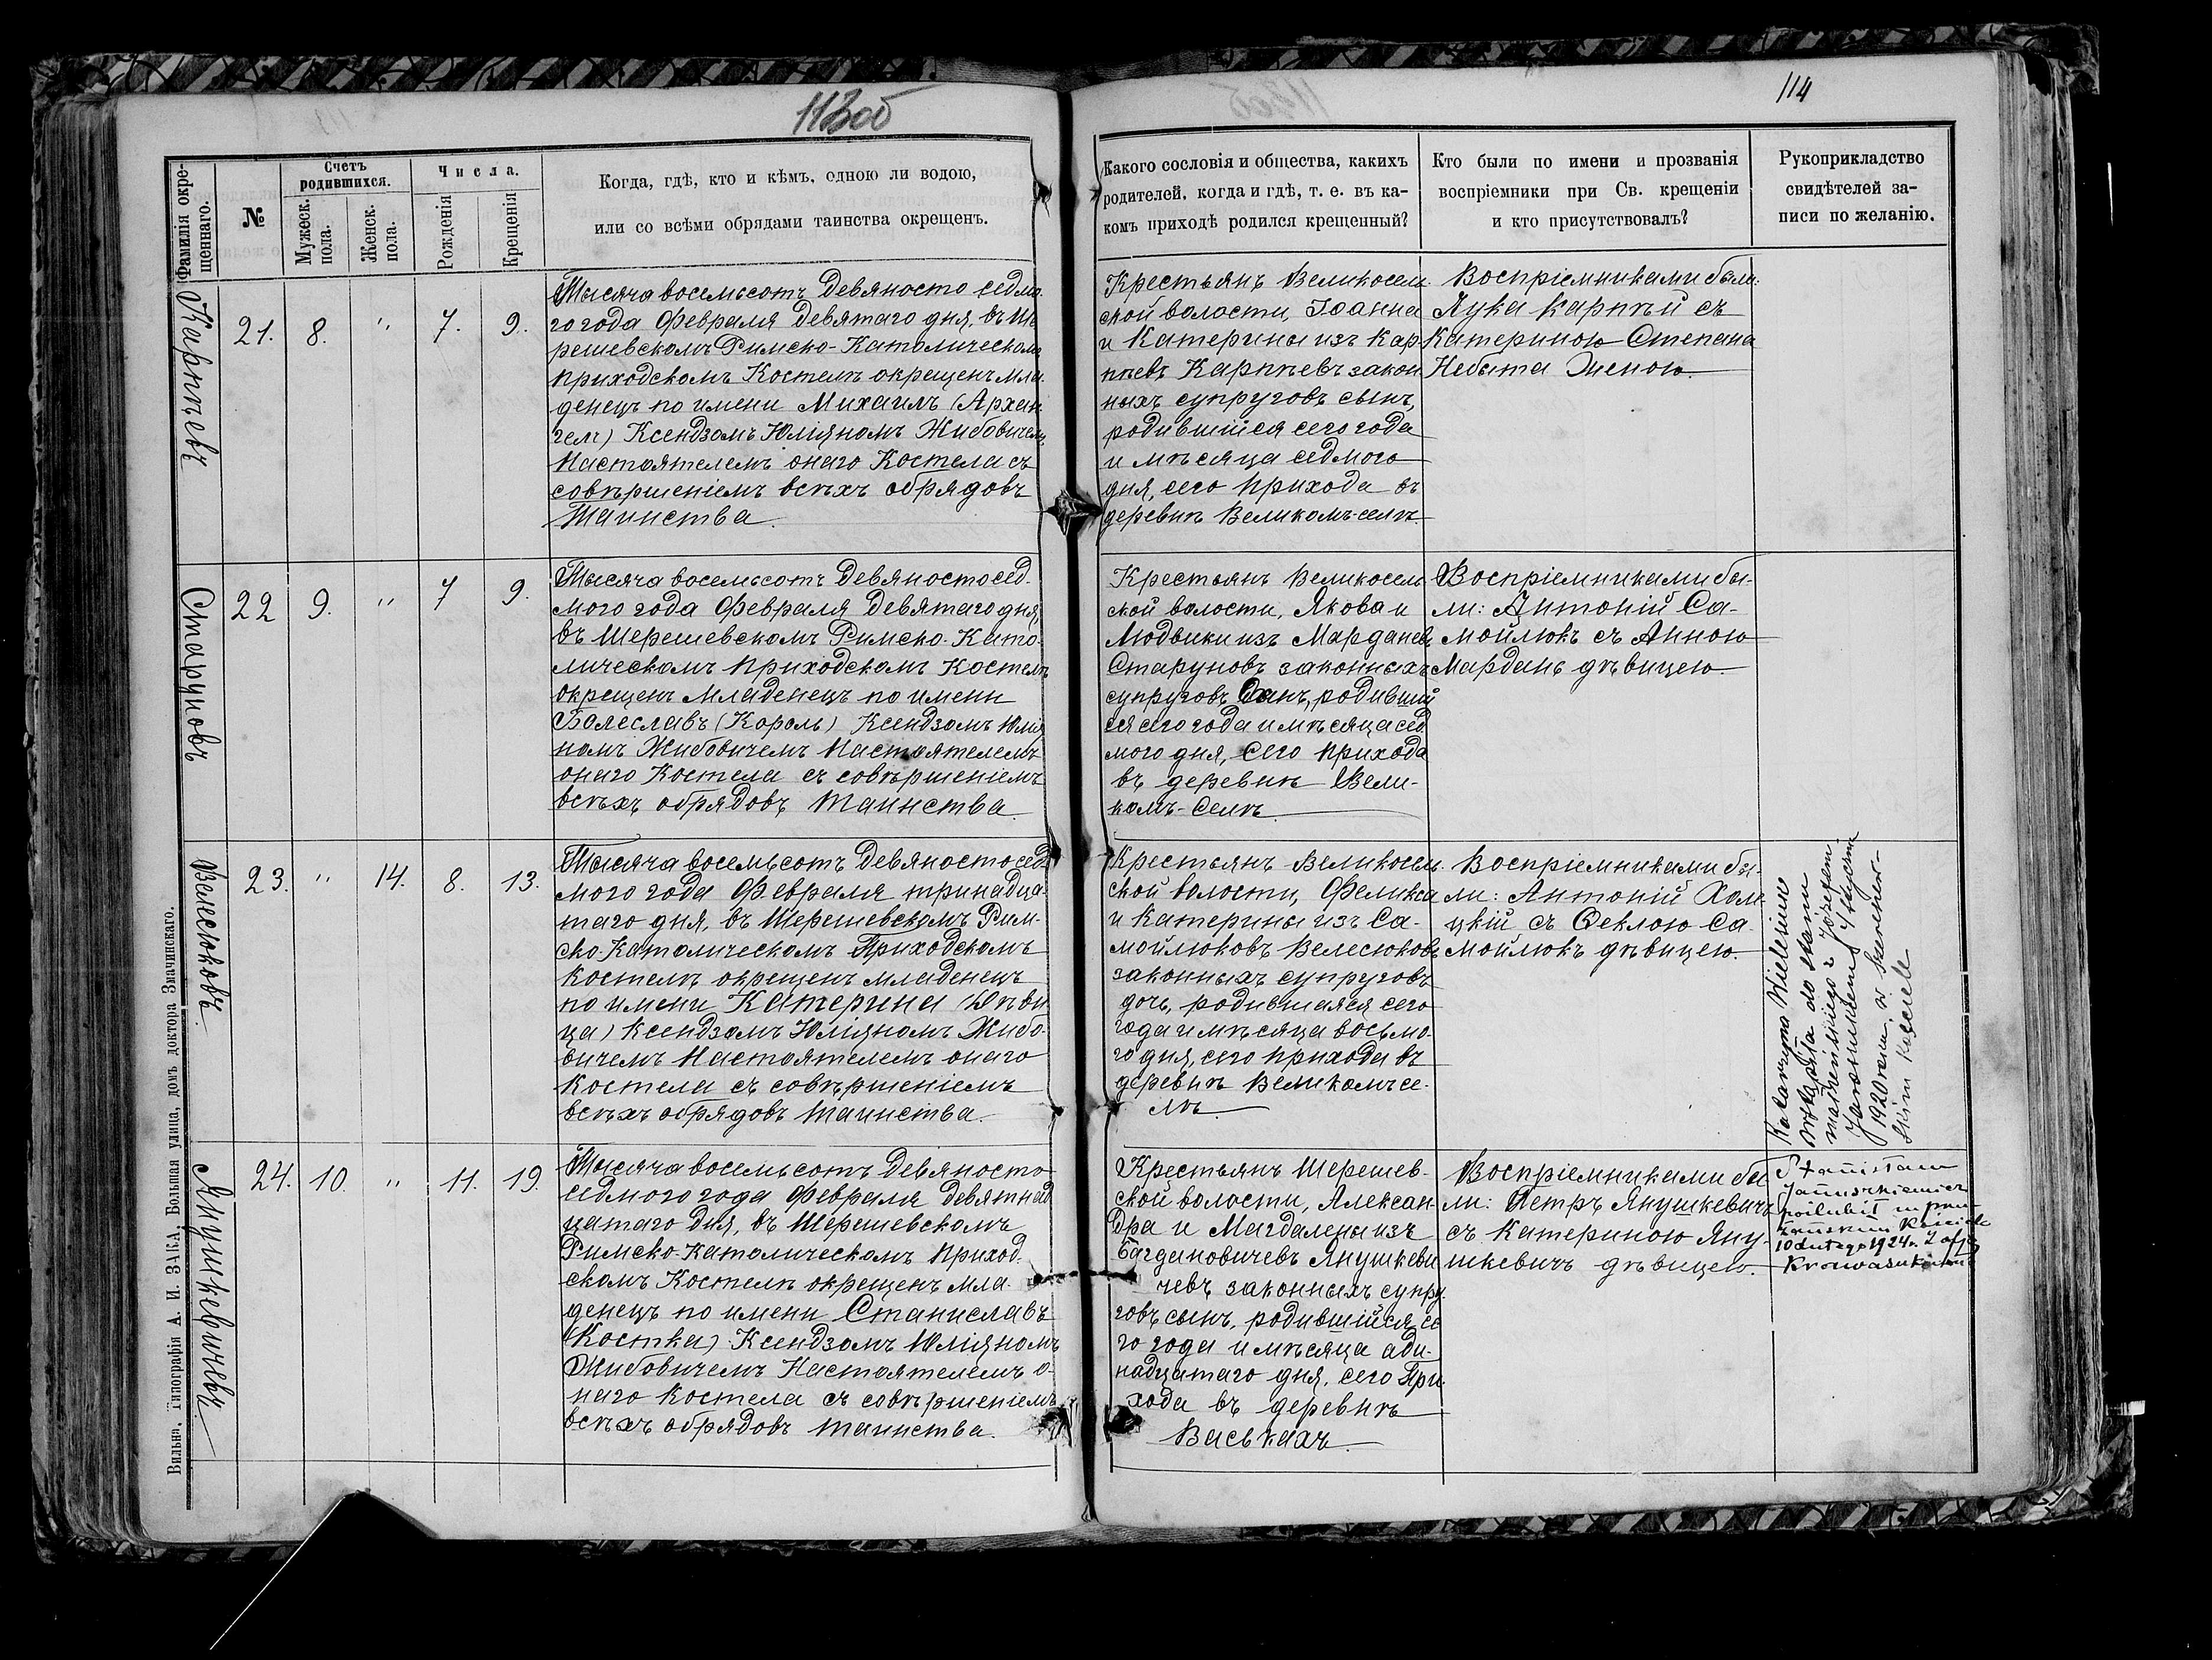 113об
114
Фамилія окре-
щеннаго.
№
Счетъ
родившихся.
Мужеск.
пола.
Женск.
пола.
Числа.
Рожденія
Крещенія
Когда, гдѣ, кто и кѣмъ, одною ли водою,
или со всѣми обрядами таинства окрещенъ.
Какого сословія и общества, какихъ
родителей, когда и гдѣ, т. е. въ ка-
комъ приходѣ родился крещенный?
Кто были по имени и прозванія
воспріемники при Св. крещеніи
и кто присутствовалъ?
Рукоприкладство
свидѣтелей за-
писи по желанію.
Карпѣевъ
21. 8. " 7. 9.
Тысяча восемьсотъ Девяносто седмо-
го года Февраля Девятаго дня, въ Ше
решевскомъ Римско-Католическомъ
Приходскомъ Костелѣ окрещенъ мла-
денецъ по имени Михаилъ (Архан
гелъ) Ксендзомъ Юліяномъ Жибовичемъ
Настоятелемъ онаго Костела съ
совѣршеніемъ всѣхъ обрядовъ
Таинства.
Крестьянъ Великосель-
ской волости, Іоанна
и Катерины изъ Кар-
пѣевъ Карпѣевъ закон
ныхъ супруговъ сынъ,
родившійся сего года
и мѣсяца седмого
дня, сего прихода въ
деревнѣ Великомъ-селѣ.
Воспріемниками были:
Лука Карпѣй съ
Катериною Степана
Небыта Женою.
Старуновъ
22 9. " 7 9.
Тысяча восемьсотъ Девяносто сед-
мого года Февраля Девятаго дня,
въ Шерешевскомъ Римско-Като-
лическомъ Приходскомъ Костелѣ
окрещенъ младенецъ по имени
Болеславъ (Король) Ксендзомъ Юлія
номъ Жибовичемъ Настоятелемъ
онаго Костела съ совѣршеніемъ
всѣхъ обрядовъ Таинства.
Крестьянъ Великосель
ской волости, Якова и
Людвики изъ Мардановъ
Старуновъ законныхъ
супруговъ Сынъ, родивший
ся сего года и мѣсяца сед
мого дня, сего прихода
въ деревнѣ Вели-
комъ-Селѣ.
Воспріемниками бы-
ли: Антоній Са-
мойлюкъ съ Анною
Марданъ дѣвицею.
Велесюковъ
23. " 14. 8. 13.
Тысяча восемьсотъ Девяносто сед
мого года Февраля тринадца-
таго дня, въ Шерешевскомъ Рим-
ско-Католическомъ Приходскомъ
Костелѣ окрещенъ младенецъ
по имени Катерина (Дѣви
ца) Ксендзомъ Юліяномъ Жибо-
вичемъ Настоятелемъ онаго
Костела съ совѣршеніемъ
всѣхъ обрядовъ Таинства.
Крестьянъ Великосель-
ской волости, Феликса
и Катерины изъ Са-
мойлюковъ Велесюковъ
законныхъ супруговъ
дочь, родившаяся сего
года и мѣсяца восьмо-
го дня, сего прихода въ
деревнѣ Великомъ се-
лѣ.
Воспріемниками бы-
ли: Антоній Хом
цкій, съ Ѳеклою Са-
мойлюкъ дѣвицею.
Katarzyna
wstąpiła do stanu
małżeńskiego z Józefem
1920 roku w Szereszew-
skim kościele
Янушкевичевъ
24. 10. " 11. 19.
Тысяча восемьсотъ Девяносто
седмого года Февраля Девятнад
цатаго дня, въ Шерешевскомъ
Римско-Католическомъ Приход-
скомъ Костелѣ окрещенъ мла-
денецъ по имени Станиславъ
(Костка) Ксендзомъ Юліяномъ
Жибовичемъ Настоятелемъ о-
наго Костела съ совѣршеніемъ
всѣхъ обрядовъ Таинства.
Крестьянъ Шерешев-
ской волости, Алексан-
дра и Магдалены изъ
Багдановичевъ Янушкеви
чевъ законныхъ супру-
говъ сынъ, родившійся се
го года и мѣсяца оди-
надцатаго дня, сего При-
хода въ деревнѣ
Васькахъ.
Воспріемниками бы
ли: Петръ Янушкевичъ
съ Катериною Яну-
шкевичъ дѣвицею.
Stanisław
Januszkiewicz
poślubił w pru-
żańskim Kościele
10 Lutego 1924 r. Zofję
Вильна, Типографія А. И. ЗАКА, Большая улица, домъ доктора Змачинскаго.